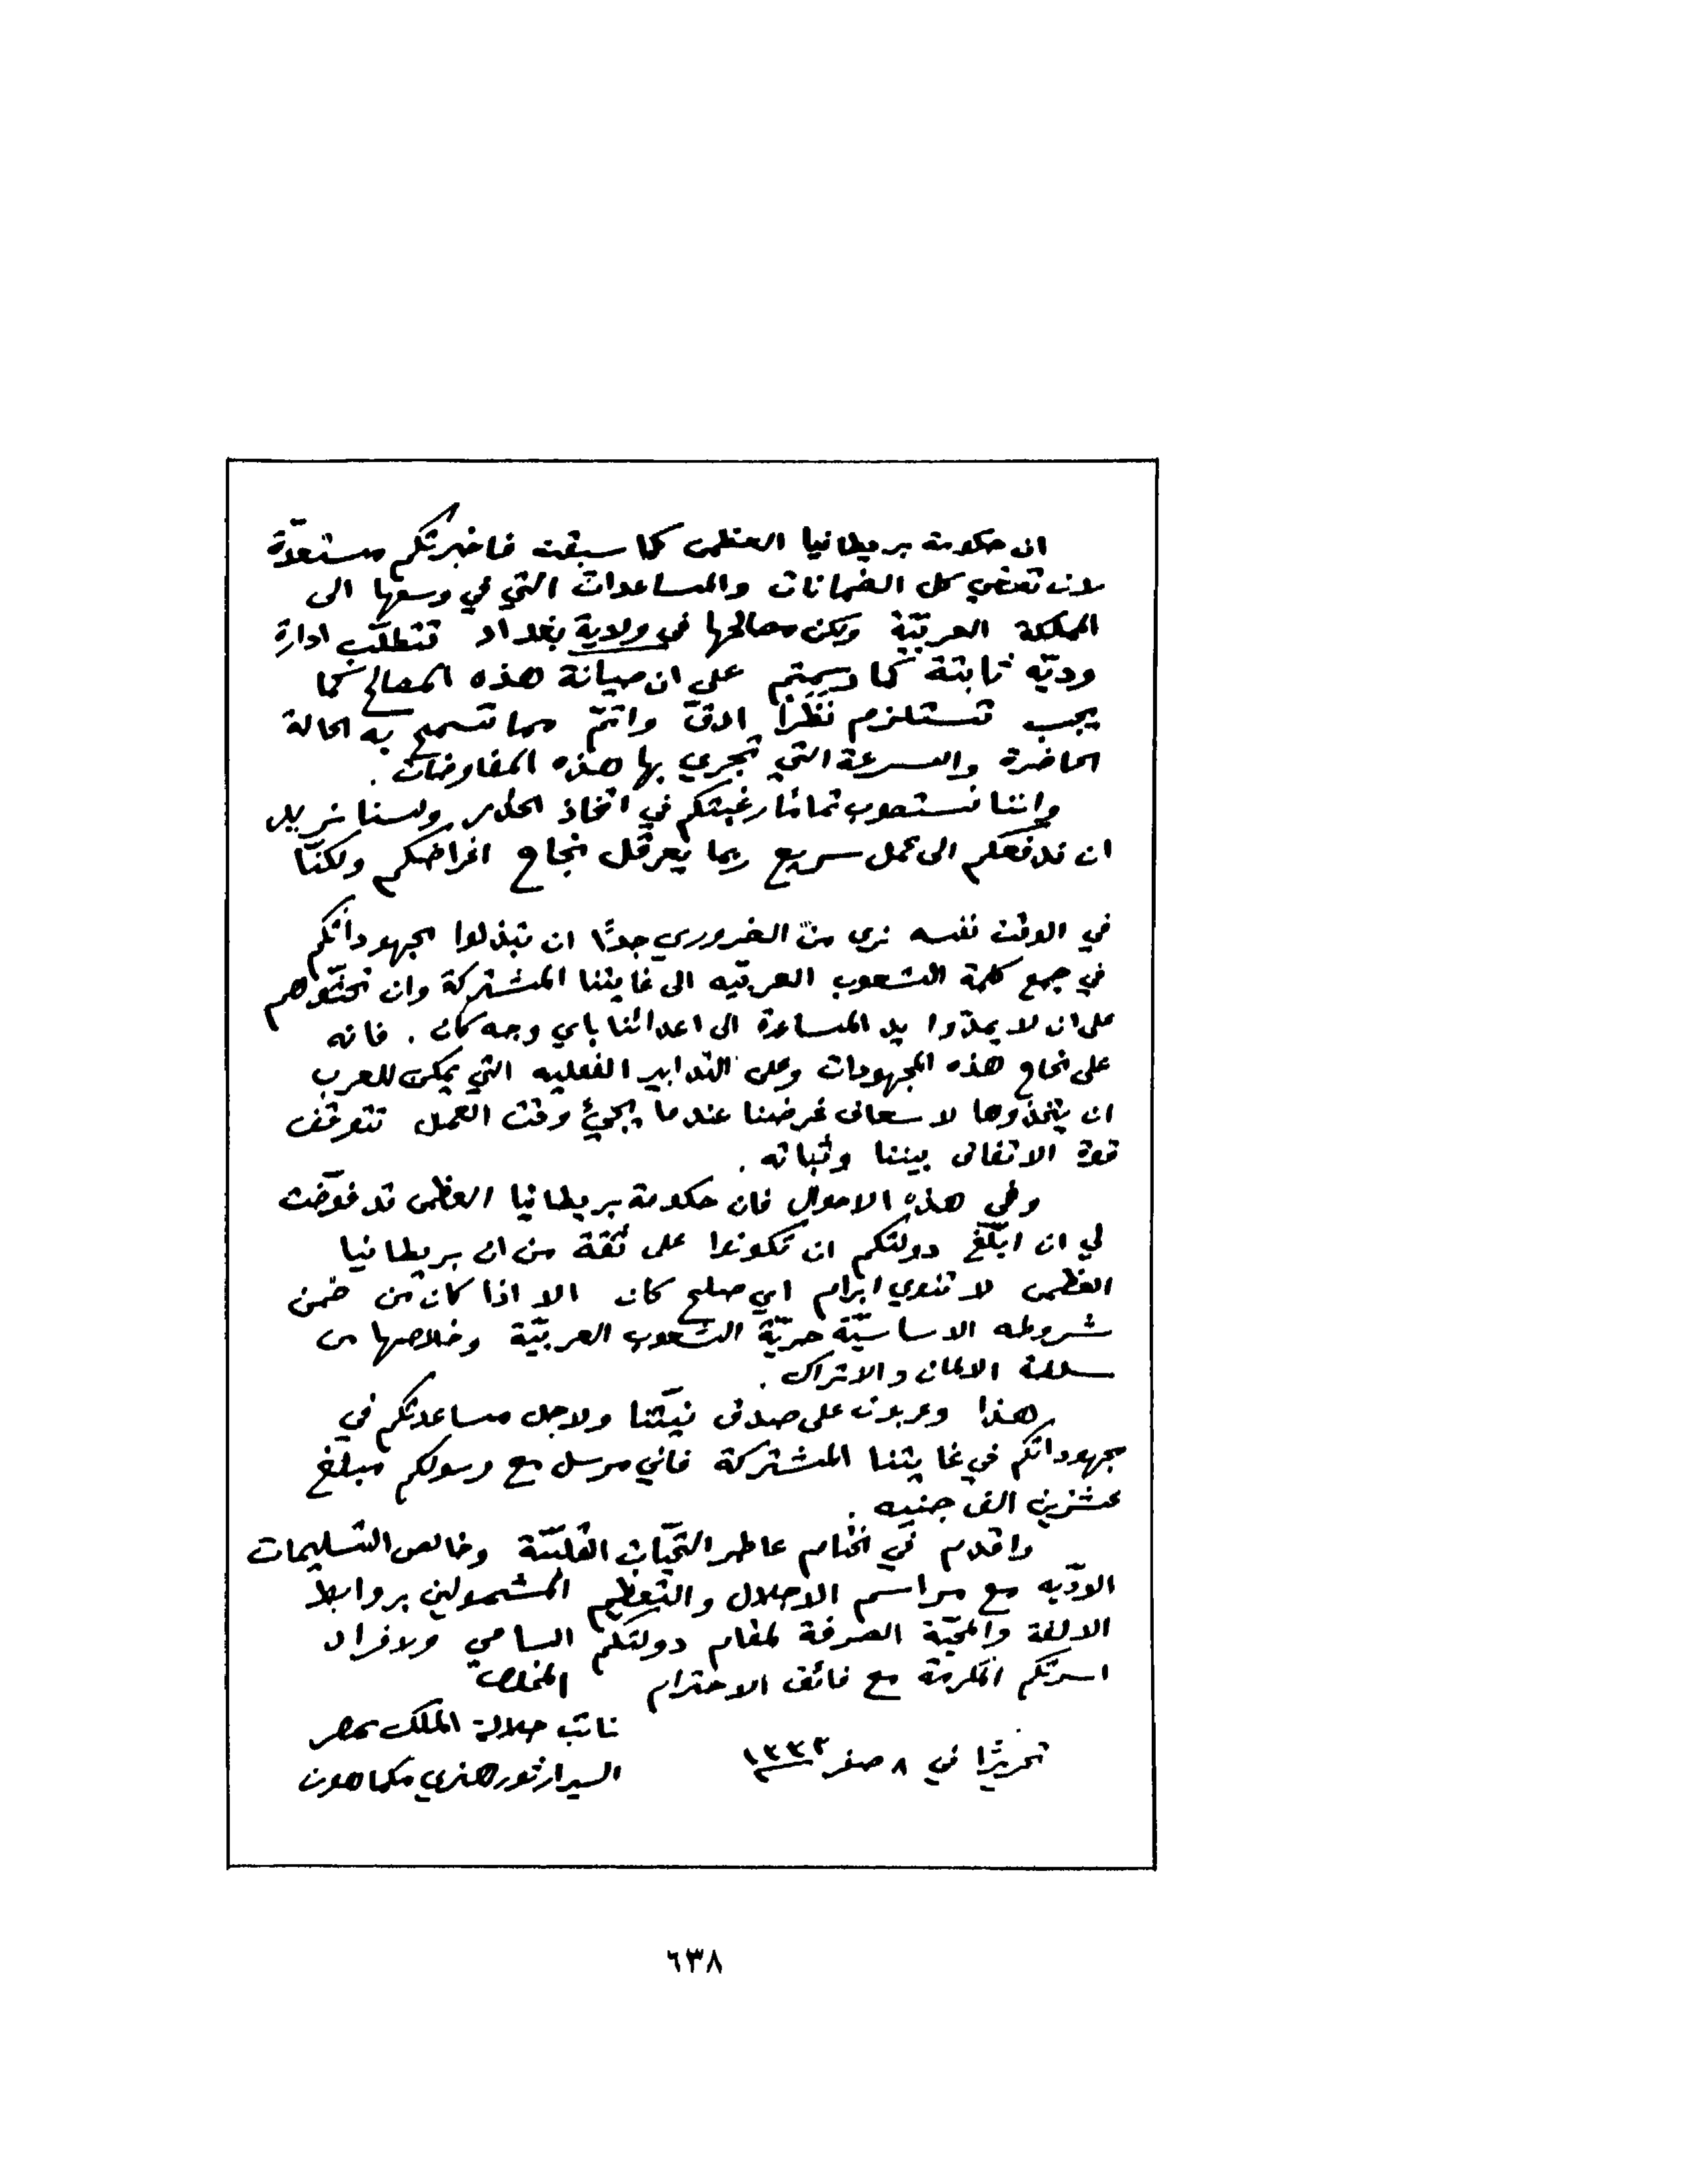 ان حكومة بريطانيا العظمى كما سبقت فاخبرتكم مستعدّة
لان تعطي كل الضمانات والمساعدات التي في وسعها الى
المملكة العربيّة ولكن مصالحها في ولاية بغداد تتطلّب ادارة
وديّه ثابتة كما رسمتم على ان صيانة هذه المصالح كما
يجب تستلزم نظرًا ادقّ واتمّ مما تسمح به الحالة
الحاضرة والسرعة التي تجري بها هذه المفاوضات .
واننا نستصوب تمامًا رغبتكم في اتخاذ الحذر ولسنا نريد
ان ندفعكم الى عمل سريع ربما يعرقل نجاح اغراضكم ولكنّا
في الوقت نفسه نرى من الضروري جدًا ان تبذلوا مجهوداتكم
في جمع كلمة الشعوب العربيّه الى غايتنا المشتركة وان تحثّوهم
على ان لا يمدّوا يد المساعدة الى اعدائنا باي وجه كان . فانه
على نجاح هذه المجهودات وعلى التدابير الفعليه التي يمكن للعرب
ان يتخذوها لاسعاف غرضنا عندما يجيُ وقت العمل تتوقف
قوة الاتفاق بيننا وثباته .
وفي هذه الاحوال فان حكومة بريطانيا العظمى قد فوّضت
لي ان ابلّغ دولتكم ان تكونوا على ثقة من ان بريطانيا
العظمى لا تنوي ابرام اي صلح كان الا اذا كان من ضمن
شروطه الاساسيّة حريّة الشعوب العربيّة وخلاصها من
سلطة الالمان والاتراك .
هذا وعربون على صدق نيّتنا ولاجل مساعدتكم في
مجهوداتكم في غايتنا المشتركة فاني مرسل مع رسولكم مبلغ
عشرين الف جنيه .
واقدم في الختام عاطر التحيّات القلبيّة وخالص التسليمات
الودّيه مع مراسم الاجلال والتعظيم المشمولين بروابط
الالفة والمحبّة الصرفة لمقام دولتكم السامي ولافراد
اسرتكم المكرمة مع فائق الاحترام المخلص
نائب جلالة الملك بمصر
تحريرًا في ٨ صفر ١٣٣٤
السير ارثور هنري مكماهون
٦٣٨